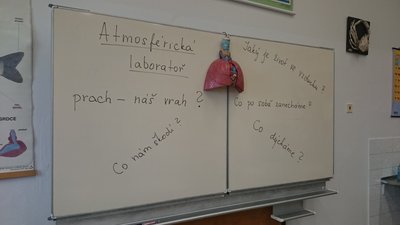 Atmosférická
laboratoř
prach – náš vrah ?
Co nám škodí ?
Jaký je život ve vzduchu ?
Co po sobě zanecháme ?
Co dýcháme ?
SRDCE